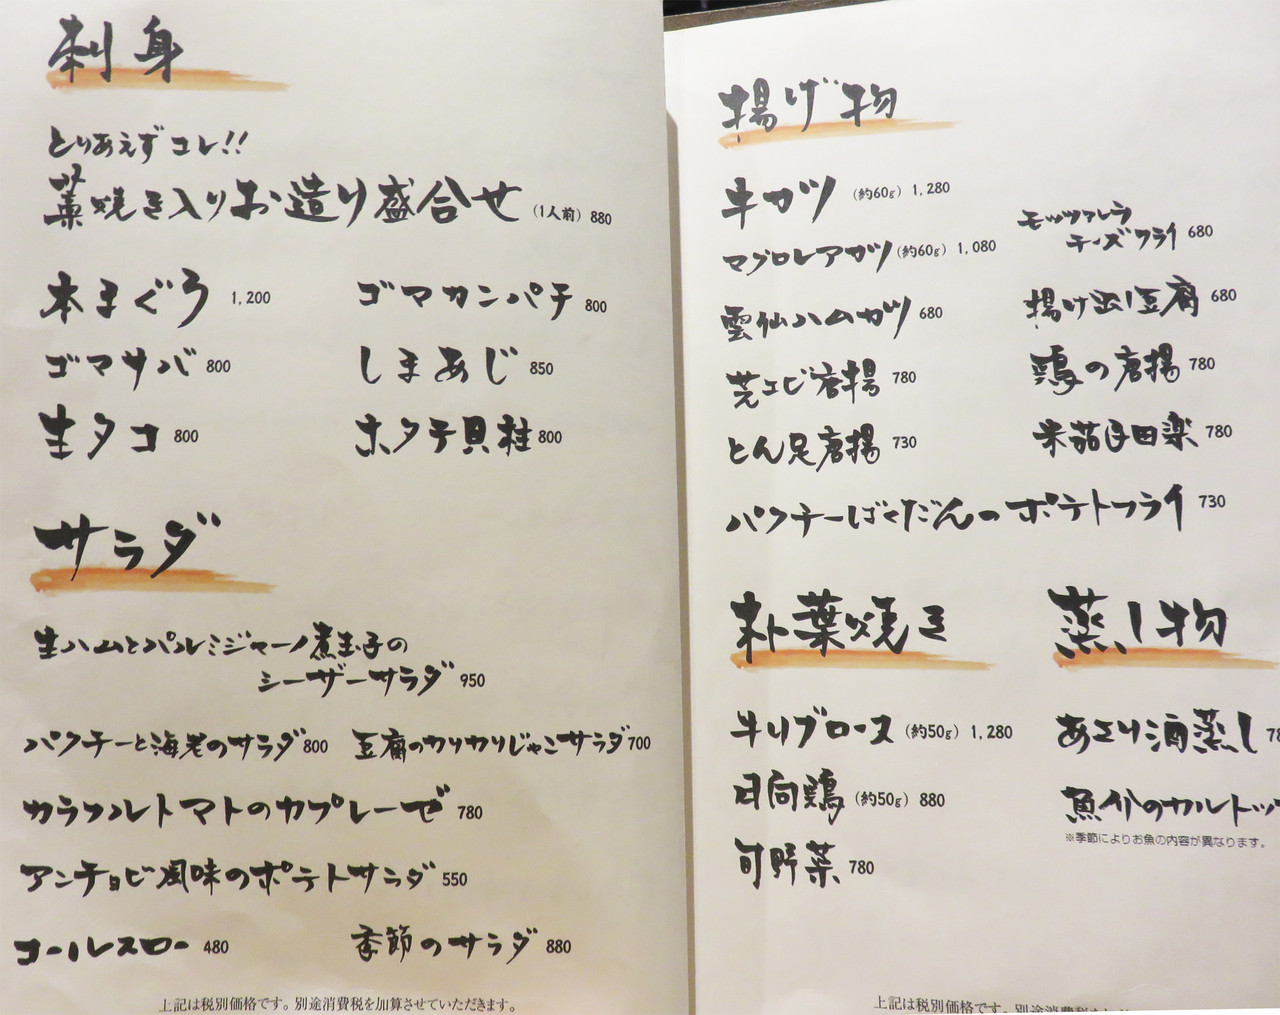 刺身
とりあえずコレ!!
藁焼き入りお造り盛合せ (1人前) 880
本まぐろ 1,200
ゴマカンパチ 800
ゴマサバ 800
しまあじ 850
生タコ 800
ホタテ貝柱 800
サラダ
生ハムとパルミジャーノ煮玉子の
シーザーサラダ 950
パクチーと海老のサラダ 800
豆腐のカリカリじゃこサラダ 700
カラフルトマトのカプレーゼ 780
アンチョビ風味のポテトサラダ 550
コールスロー 480
季節のサラダ 880
上記は税別価格です。別途消費税を加算させていただきます。
揚げ物
牛カツ (約60g) 1,280
マグロレアカツ (約60g) 1,080
雲仙ハムカツ 680
芝エビ唐揚 780
とん足唐揚 730
モッツァレラ
チーズフライ 680
揚げ出し豆腐 680
鶏の唐揚 780
米茄子田楽 780
パクチーばくだんのポテトフライ 730
朴葉焼き
牛リブロース (約50g) 1,280
日向鶏 (約50g) 880
旬野菜 780
蒸し物
あさり酒蒸し 78
魚介のカルトッ
※季節によりお魚の内容が異なります。
上記は税別価格です。別途消費税